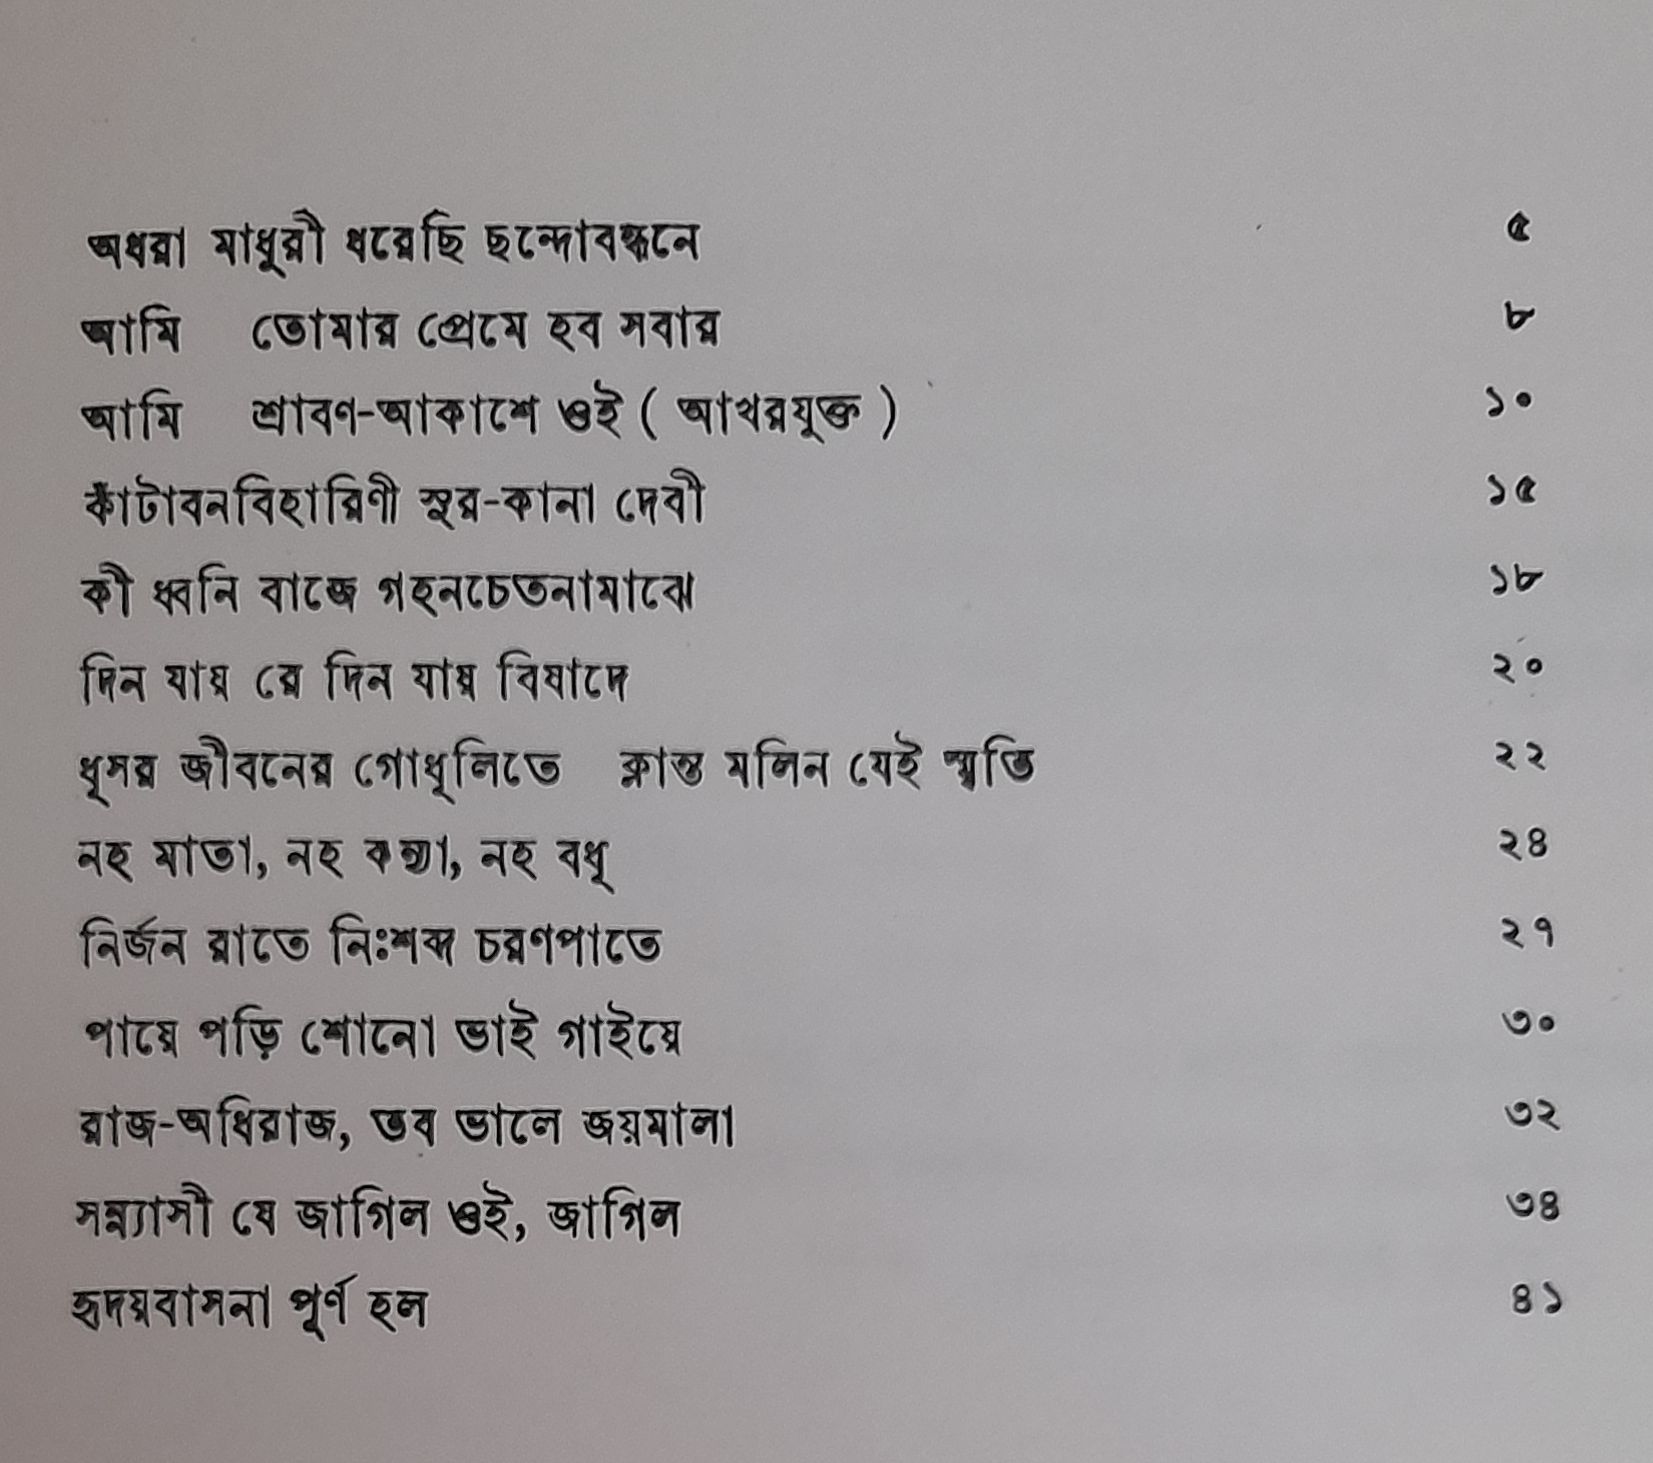 অধরা মাধুরী ধরেছি ছন্দোবন্ধনে ৫
আমি তোমার প্রেমে হব সবার ৮
আমি শ্রাবণ-আকাশে ওই ( আখরযুক্ত ) ১০
কাঁটাবনবিহারিণী সুর-কানা দেবী ১৫
কী ধ্বনি বাজে গহনচেতনামাঝে ১৮
দিন যায় রে দিন যায় বিষাদে ২০
ধূসর জীবনের গোধূলিতে ক্লান্ত মলিন যেই স্মৃতি ২২
নহ মাতা, নহ কন্যা, নহ বধূ ২৪
নির্জন রাতে নিঃশব্দ চরণপাতে ২৭
পায়ে পড়ি শোনো ভাই গাইয়ে ৩০
রাজ-অধিরাজ, তব ভালে জয়মালা ৩২
সন্ন্যাসী যে জাগিল ওই, জাগিল ৩৪
হৃদয়বাসনা পূর্ণ হল ৪১